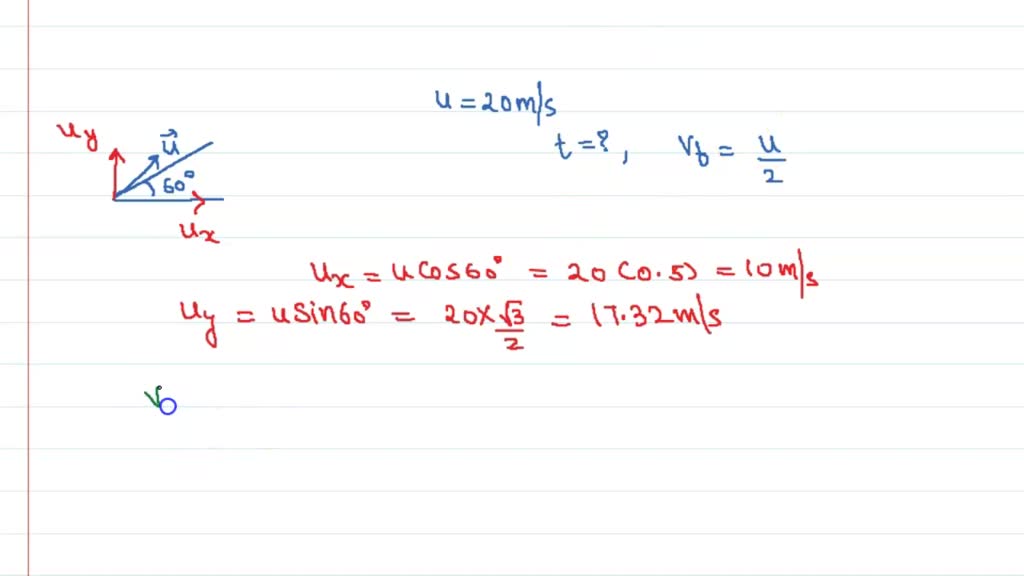 u = 20m/s
t = ?, Vf = u/2
uy
u⃗
60°
ux
ux = u Cos60° = 20(0.5) = 10m/s
uy = u Sin60° = 20 × √3/2 = 17.32m/s
V